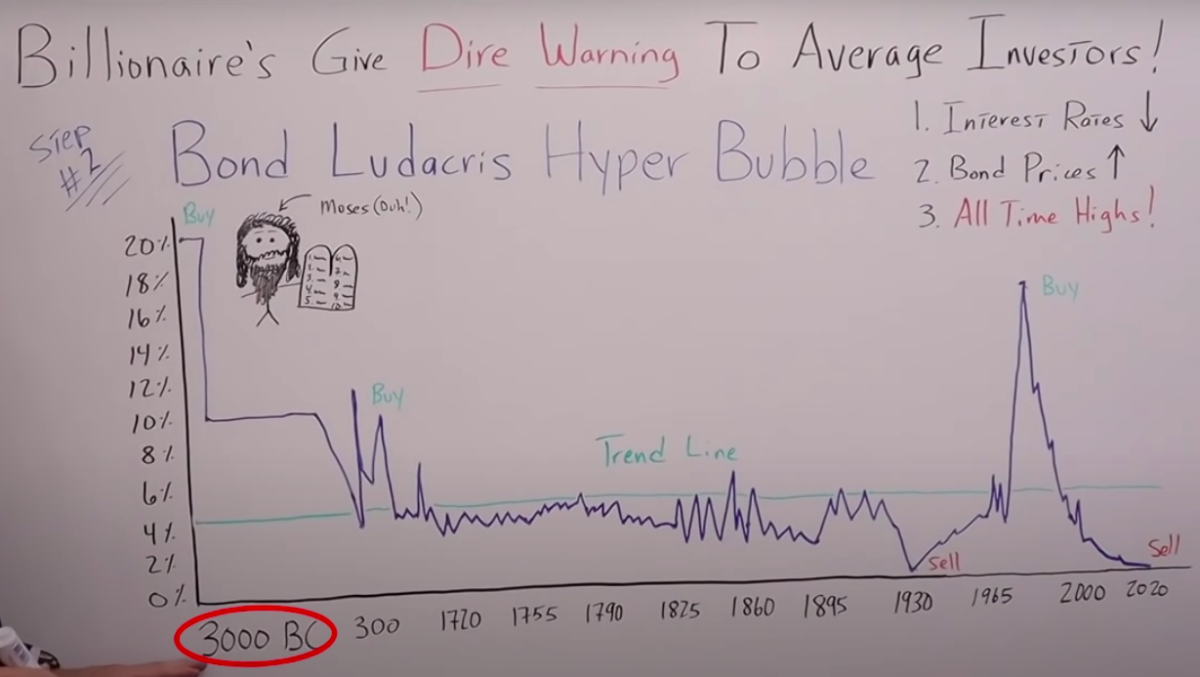 Billionaire's Give Dire Warning To Average Investors!
Step
#2
Bond Ludacris Hyper Bubble
1. Interest Rates ↓
2. Bond Prices ↑
3. All Time Highs!
Buy
Moses (Duh!)
20%
18%
16%
14%
12%
10%
8%
6%
4%
2%
0%
1.
2.
3.
4.
5.
6.
7.
8
9
10.
Buy
Trend Line
Buy
Sell
Sell
3000 BC 300 1720 1755 1790 1825 1860 1895 1930 1965 2000 2020